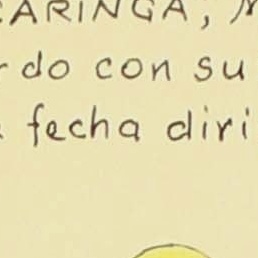 CARINGA,
rdo con su
fecha diri